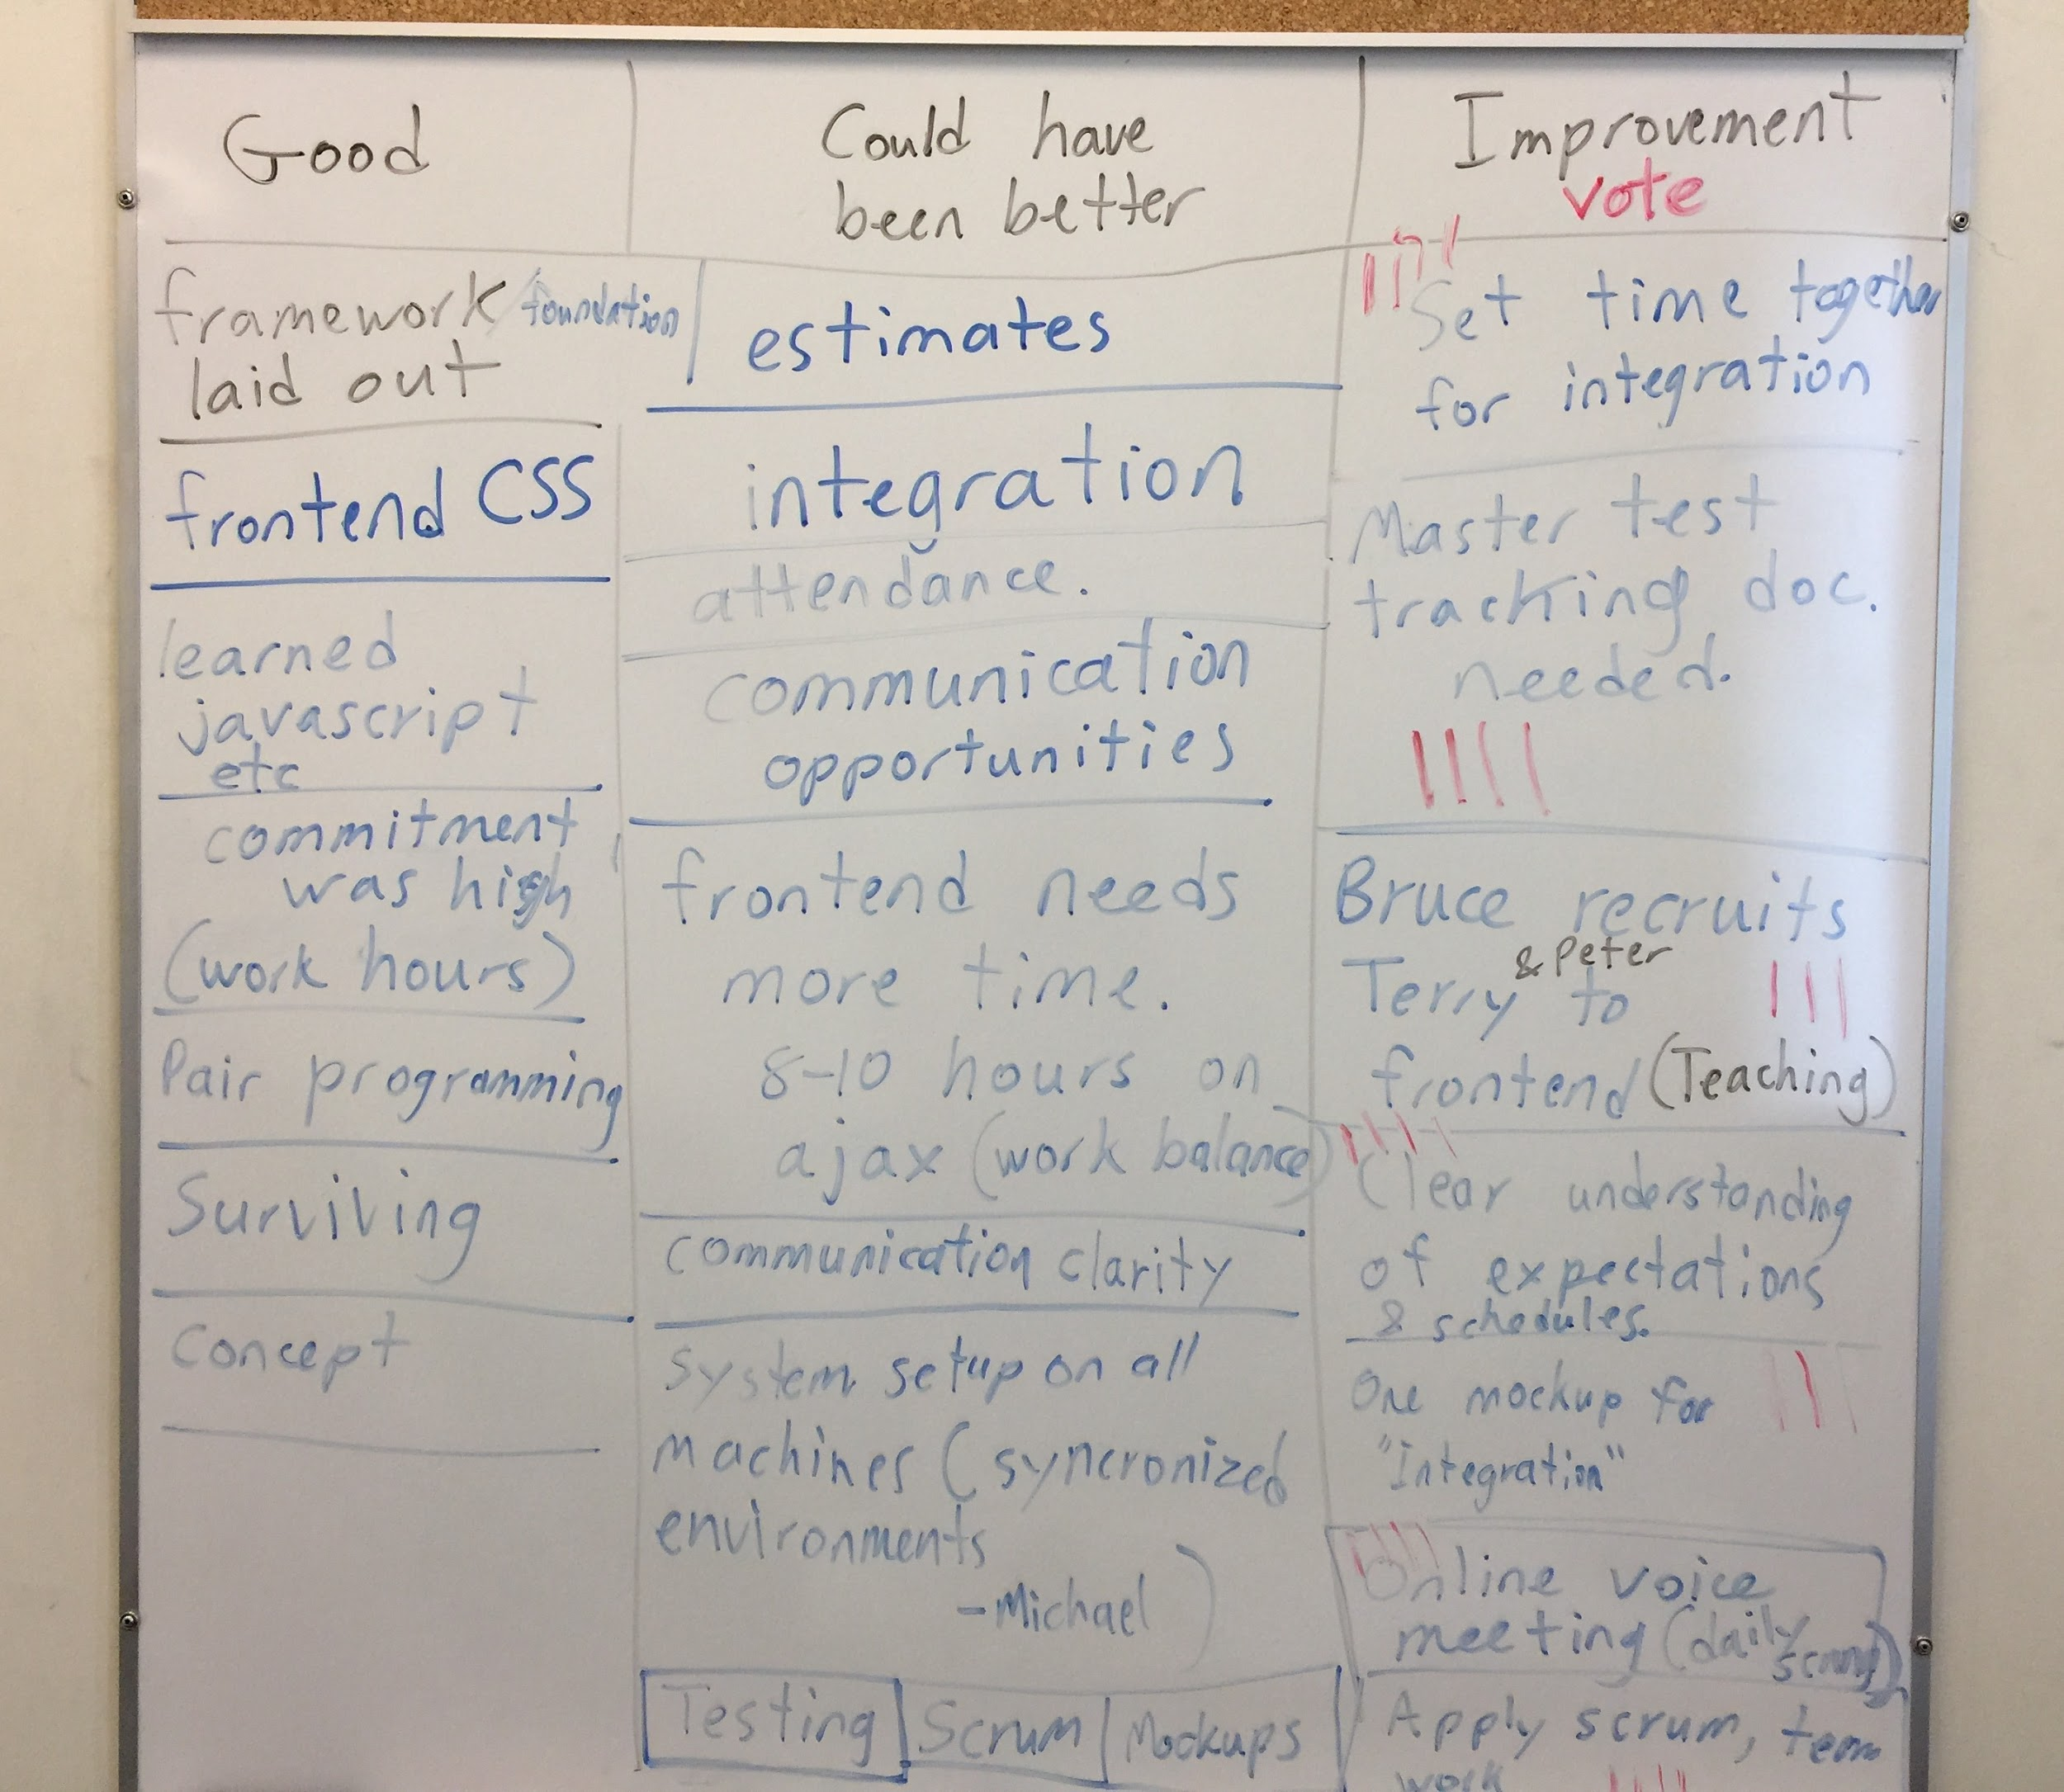 Good
framework/foundation
laid out
frontend CSS
learned
javascript
etc
commitment
was high
(work hours)
Pair programming
Surviving
Concept
Could have
been better
estimates
integration
attendance.
communication
opportunities
frontend needs
more time.
8-10 hours on
ajax (work balance)
communication clarity
System setup on all
machines (syncronized
environments
-Michael)
Testing
Scrum
Mockups
Improvement
vote
Set time together
for integration
Master test
tracking doc.
needed.
Bruce recruits
& Peter
Terry to
frontend (Teaching)
Clear understanding
of expectations
& schedules.
One mockup for
"Integration"
Online voice
meeting (daily
scrum)
Apply scrum, team
work